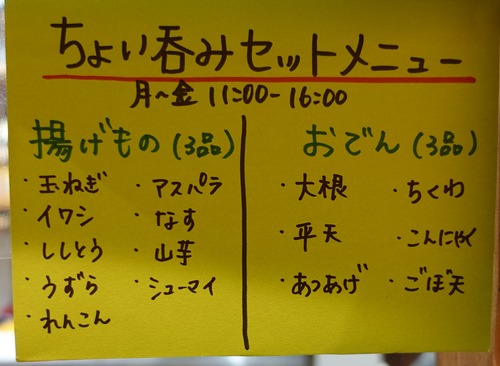 ちょい呑みセットメニュー
月〜金 11:00-16:00
揚げもの(3品)
・玉ねぎ ・アスパラ
・イワシ ・なす
・ししとう ・山芋
・うずら ・シューマイ
・れんこん
おでん(3品)
・大根 ・ちくわ
・平天 ・こんにゃく
・あつあげ ・ごぼ天